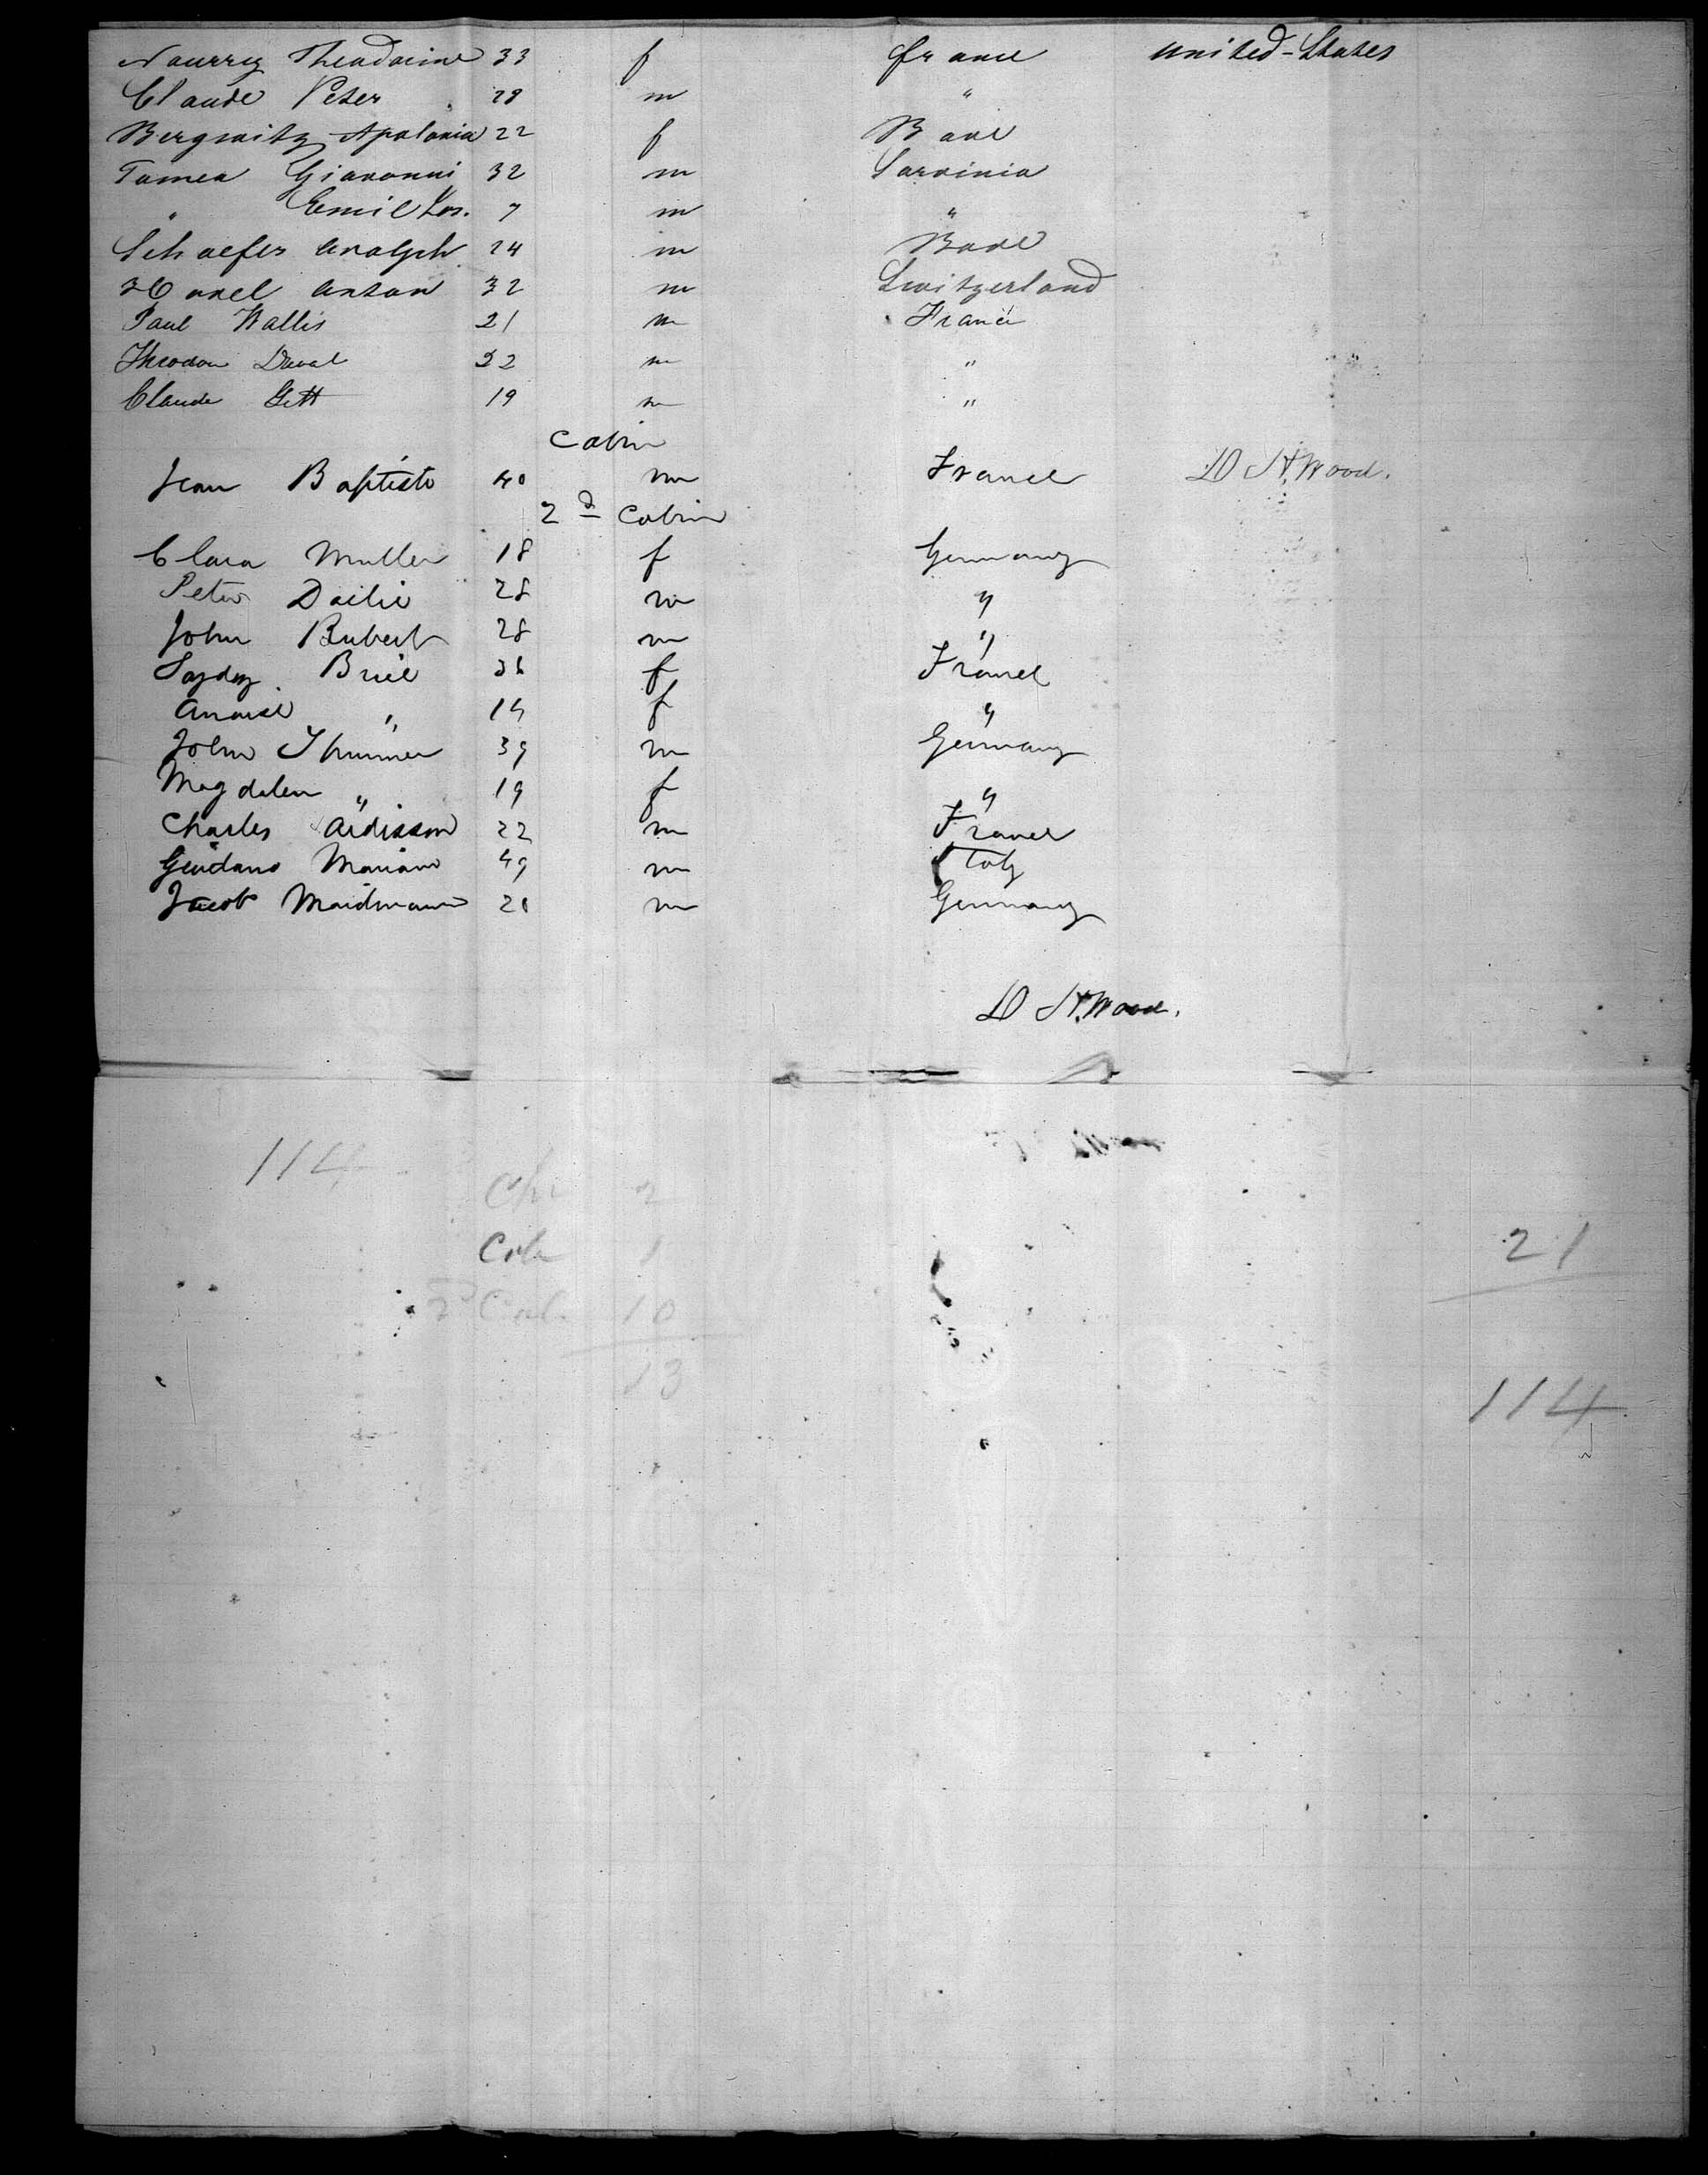 Nourry Theodorine 33 f france United-States
Claude Peter 28 m "
Bergwitz Apolonia 22 f Bade
Tomea Giovanni 32 m Sardinia
" Emil Jos. 7 m "
Schaefer Adolph 24 m Bade
Havel Anton 32 m Switzerland
Paul Wallis 21 m France
Theodor Duval 22 m "
Claude Gett 19 m "
Cabin
Jean Baptiste 40 m France D H. Wood.
2d Cabin
Clara Muller 18 f Germany
Peter 28 m "
John Rubert 28 m "
Brie 36 f France
" 14 f "
John Thurmer 39 m Germany
Magdalen " 19 f "
Charles Ardisson 22 m France
Giordano Mariano 49 m Italy
Jacob Maidmann 28 m Germany
D H. Wood.
114
2
Cab 1 21
2d Cab 10
13
114